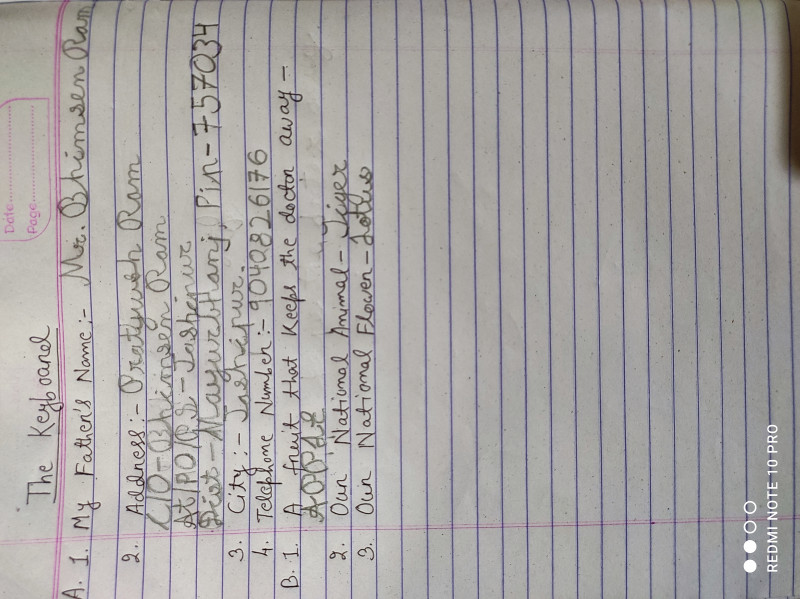 Date
Page
The Keyboard
A. 1. My Father's Name:- Mr. Bhimsen Ram
2. Address:- Pratyush Ram
C/O-Bhimsen Ram
At/PO/PS-Jashipur
Dist-Mayurbhanj, Pin-757034
3. City:- Jashipur.
4. Telephone Number:- 9040826176
B. 1. A fruit that keeps the doctor away-
2. Our National Animal-Tiger
3. Our National Flower-Lotus
REDMI NOTE 10 PRO